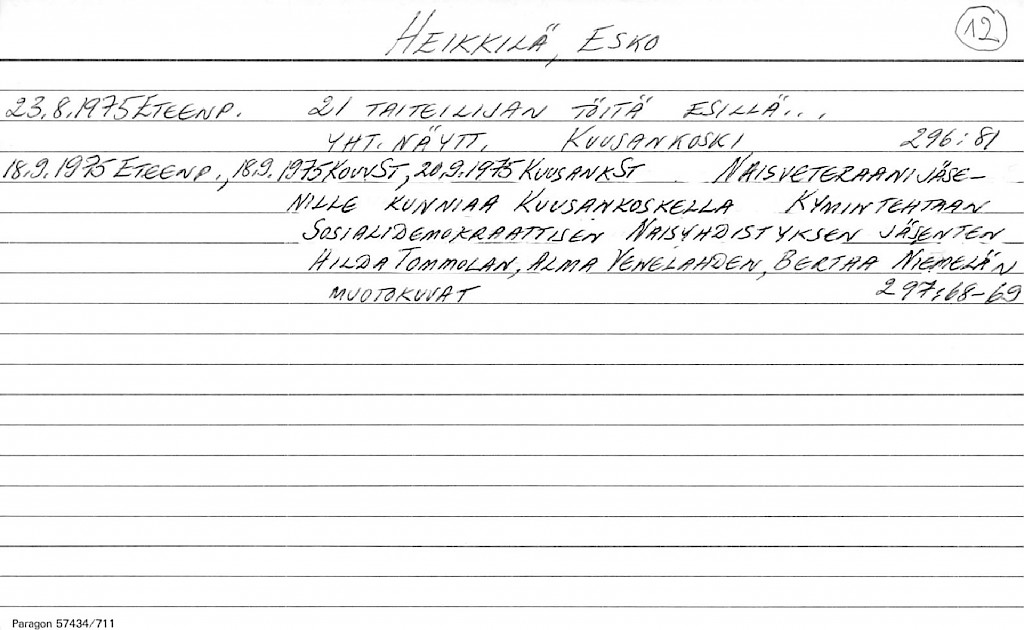 HEIKKILÄ, ESKO
12
23.8.1975 ETEENP. 21 TAITEILIJAN TÖITÄ ESILLÄ...
YHT. NÄYTT. KUUSANKOSKI 296:81
18.9.1975 ETEENP., 18.9.1975 KOUVST, 20.9.1975 KUUSANKST NAISVETERAANIJÄSE-
NILLE KUNNIAA KUUSANKOSKELLA KYMINTEHTAAN
SOSIALIDEMOKRAATTISEN NAISYHDISTYKSEN JÄSENTEN
HILDA TOMMOLAN, ALMA VENELAHDEN, BERTAA NIEMELÄN
MUOTOKUVAT 297:68-69
Paragon 57434/711